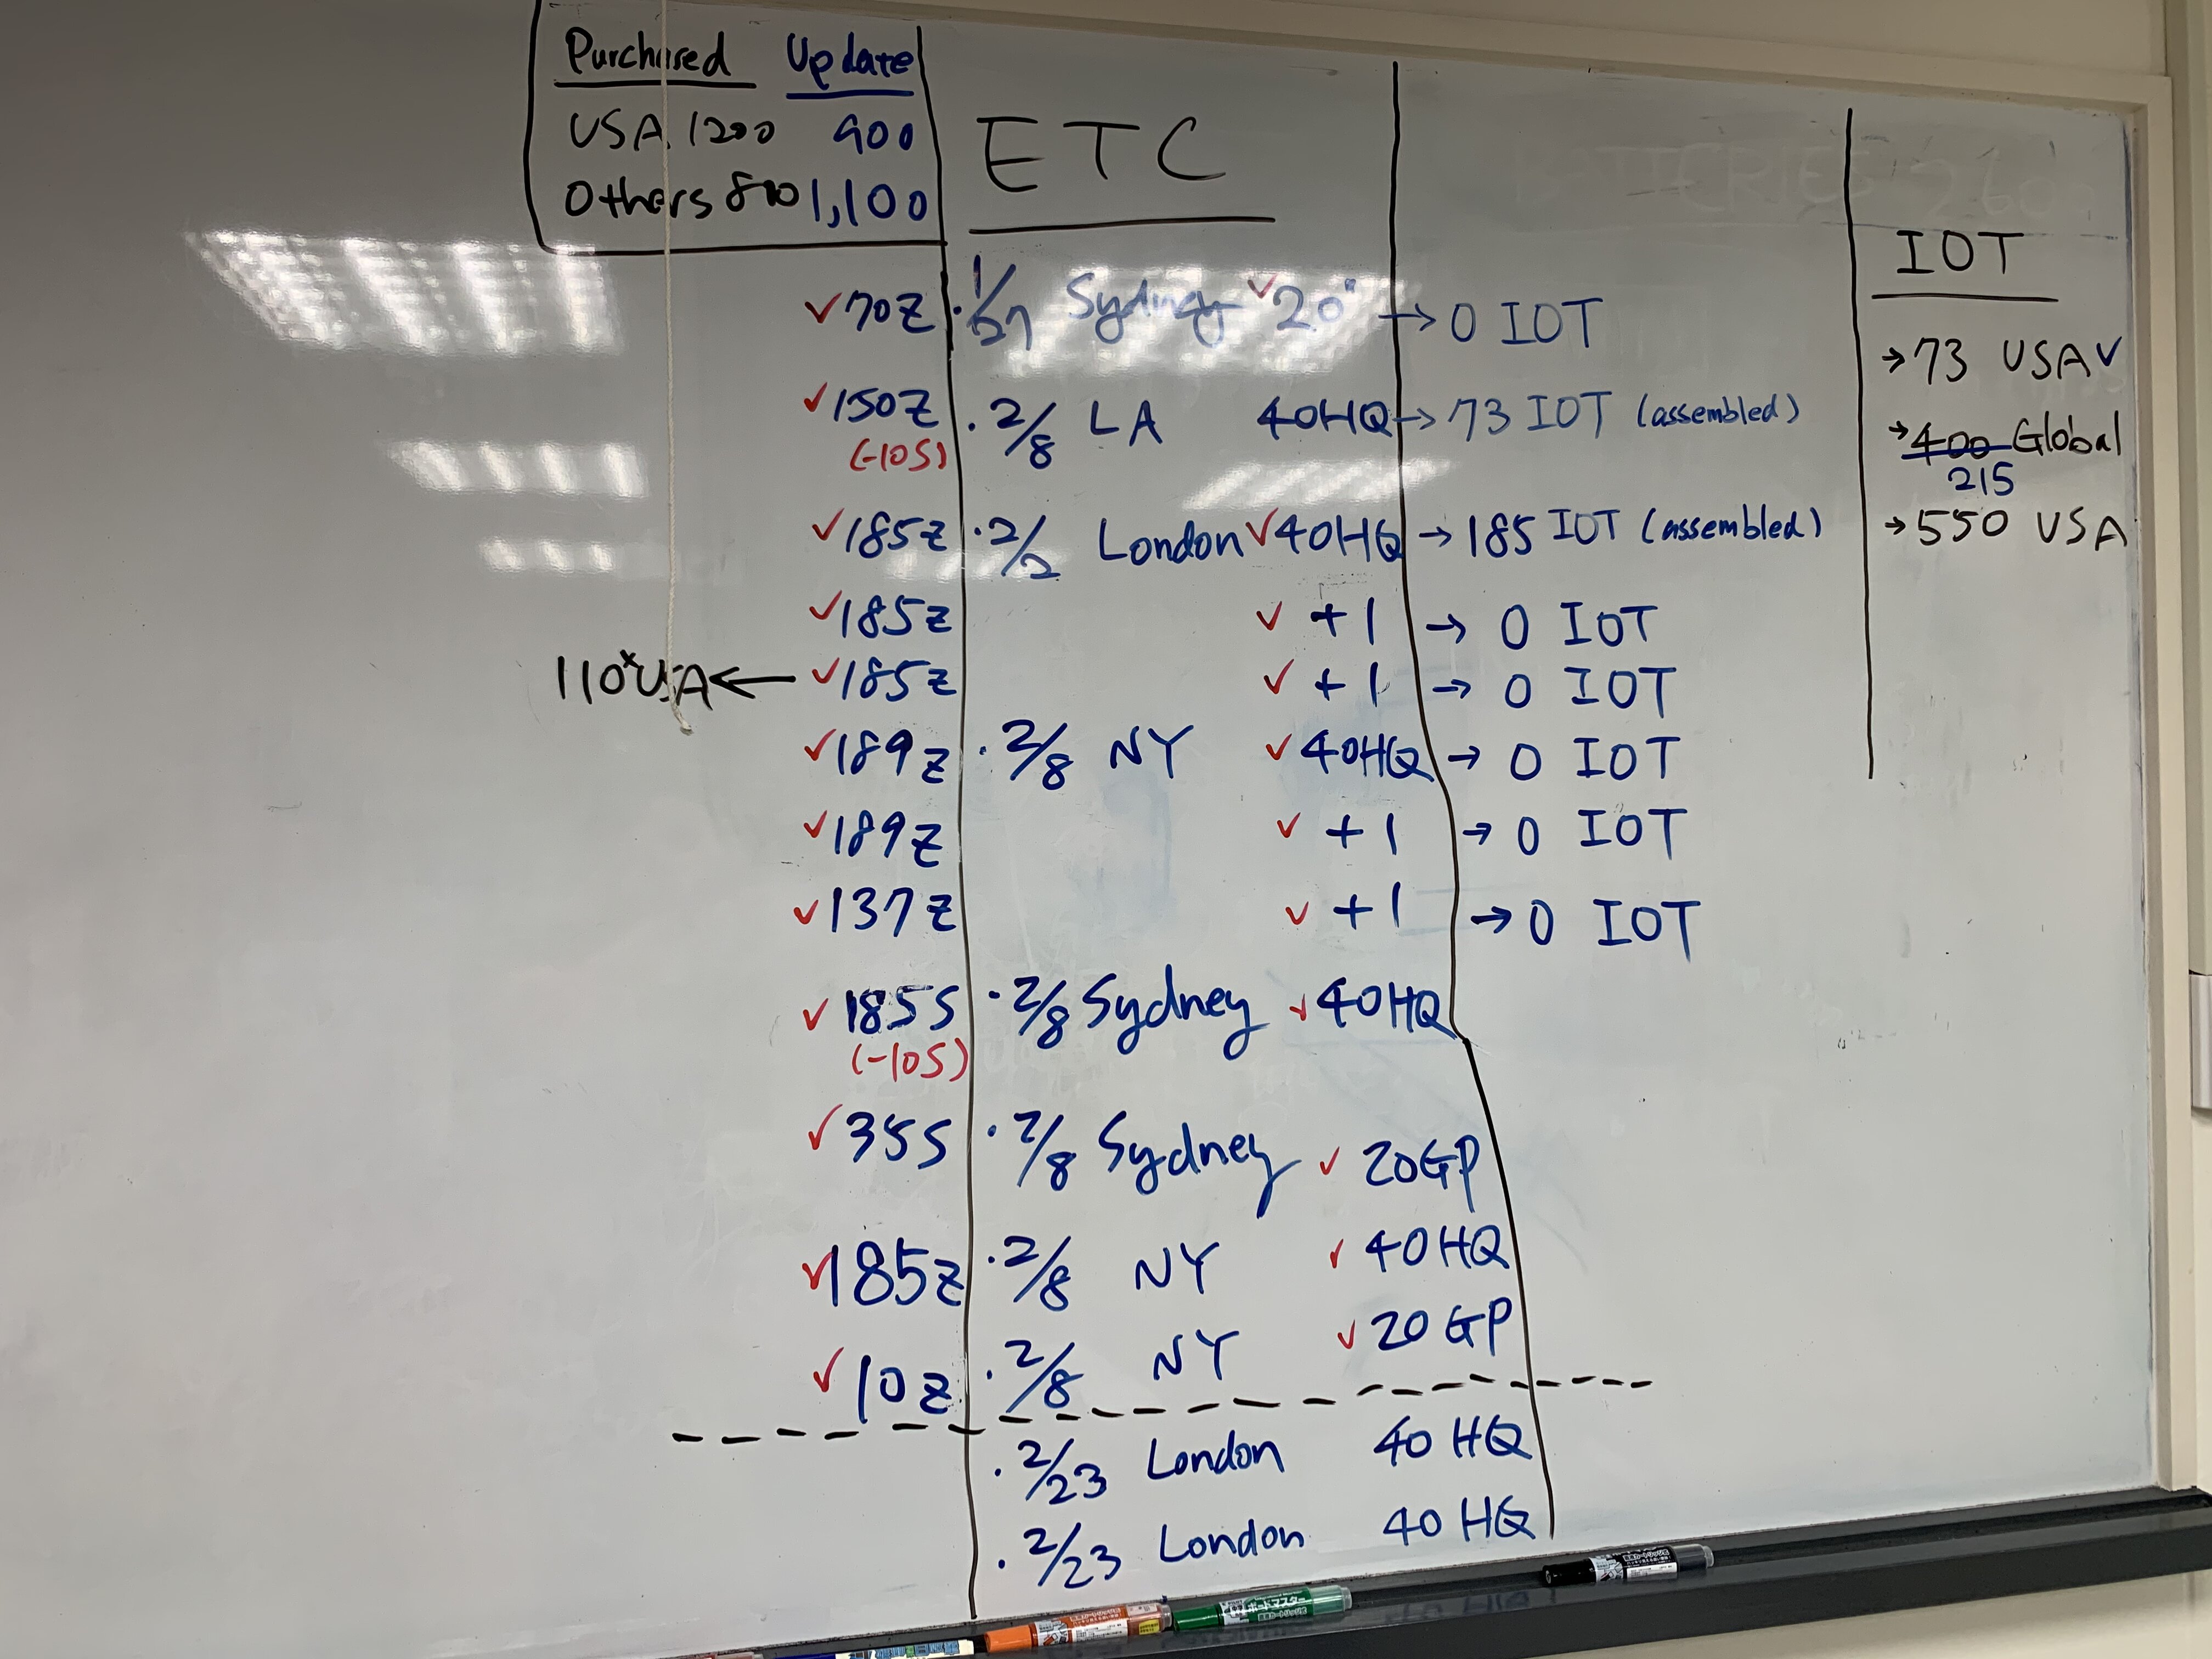 Purchased Update
USA 1200 900
Others 800 1,100
ETC
✓70Z · 1/27 Sydney ✓20" → 0 IOT
✓150Z · 2/8 LA 40HQ → 73 IOT (assembled)
(-10S)
✓185Z · 2/2 London ✓40HQ → 185 IOT (assembled)
✓185Z ✓ +1 → 0 IOT
110xUSA ← ✓185Z ✓ +1 → 0 IOT
✓189Z · 2/8 NY ✓40HQ → 0 IOT
✓189Z ✓ +1 → 0 IOT
✓137Z ✓ +1 → 0 IOT
✓185S · 2/8 Sydney ✓40HQ
(-10S)
✓35S · 2/8 Sydney ✓20GP
✓185Z · 2/8 NY ✓40HQ
✓10Z · 2/8 NY ✓20GP
· 2/23 London 40HQ
· 2/23 London 40HQ
IOT
→73 USA ✓
→400 Global
215
→550 USA
ボードマスター